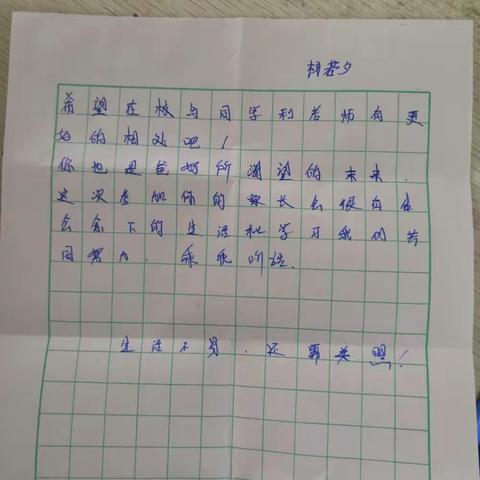 若夕
希望在校与同学和老师有更
好的相处吧！
你也是爸妈所渴望的未来.
这次参加你的家长会很有
会余下的生活和学习我们共
同努力. 乖乖听话.
生活不易.还需关照！